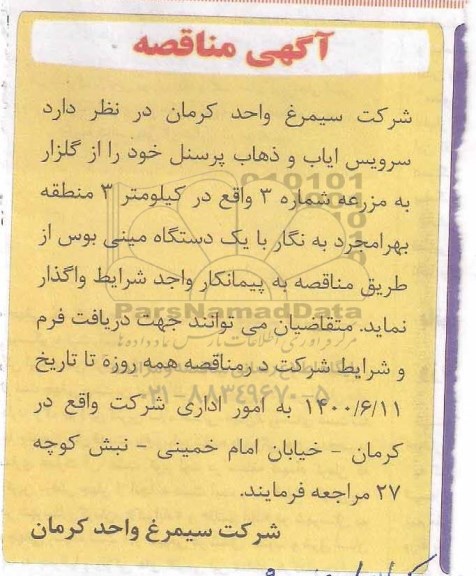 آگهی مناقصه
شرکت سیمرغ واحد کرمان در نظر دارد
سرویس ایاب و ذهاب پرسنل خود را از گلزار
به مزرعه شماره ۳ واقع در کیلومتر ۳ منطقه
بهرامجرد به نگار با یک دستگاه مینی بوس از
طریق مناقصه به پیمانکار واجد شرایط واگذار
نماید. متقاضیان می توانند جهت دریافت فرم
و شرایط شرکت در مناقصه همه روزه تا تاریخ
۱۴۰۰/۶/۱۱ به امور اداری شرکت واقع در
کرمان - خیابان امام خمینی - نبش کوچه
۲۷ مراجعه فرمایند.
شرکت سیمرغ واحد کرمان
ParsNamadData
۰۲۱-۸۸۳۴۹۶۷۰-۵